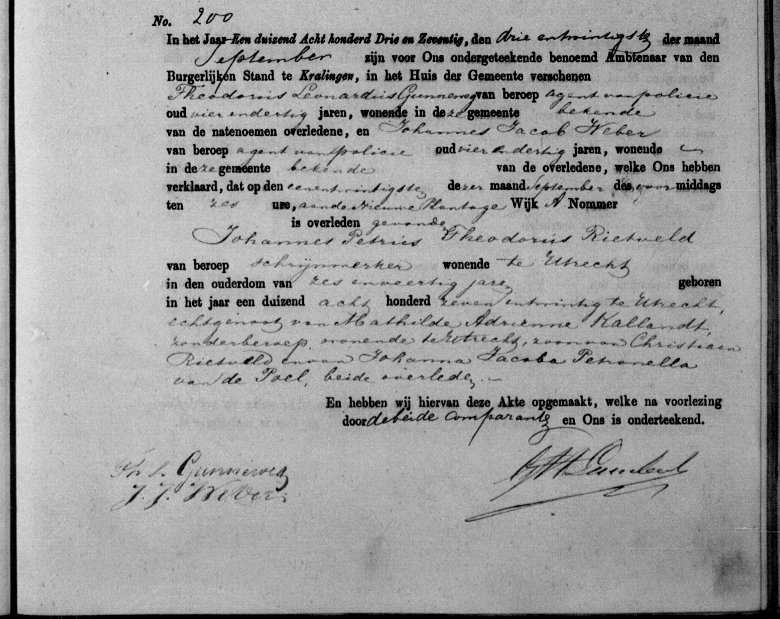 No. 200
In het Jaar Een duizend Acht honderd Drie en Zeventig, den drie entwintigste der maand
September zijn voor Ons ondergeteekende benoemd Ambtenaar van den
Burgerlijken Stand te Kralingen, in het Huis der Gemeente verschenen
Theodorus Leonardus Gunneweg van beroep agent van policie
oud vier endertig jaren, wonende in deze gemeente bekende
van de natenoemen overledene, en Johannes Jacob Weber
van beroep agent van policie oud vier endertig jaren, wonende
in deze gemeente bekende van de overledene, welke Ons hebben
verklaard, dat op den eenentwintigste dezer maand September des voor middags
ten zes ure, aan de Nieuwe Plantage Wijk A Nommer
is overleden gevonden
Johannes Petrus Theodorus Rietveld
van beroep schrijnwerker wonende te Utrecht
in den ouderdom van zes enveertig jaren geboren
in het jaar een duizend acht honderd zeven entwintig te Utrecht,
echtgenoot van Mathilde Adrienne Kallandt,
zonder beroep, wonende te Utrecht, zoon van Christiaan
Rietveld en van Johanna Jacoba Petronella
van de Poel, beide overleden.
En hebben wij hiervan deze Akte opgemaakt, welke na voorlezing
door de beide comparanten en Ons is onderteekend.
Th. L. Gunneweg
J. J. Weber